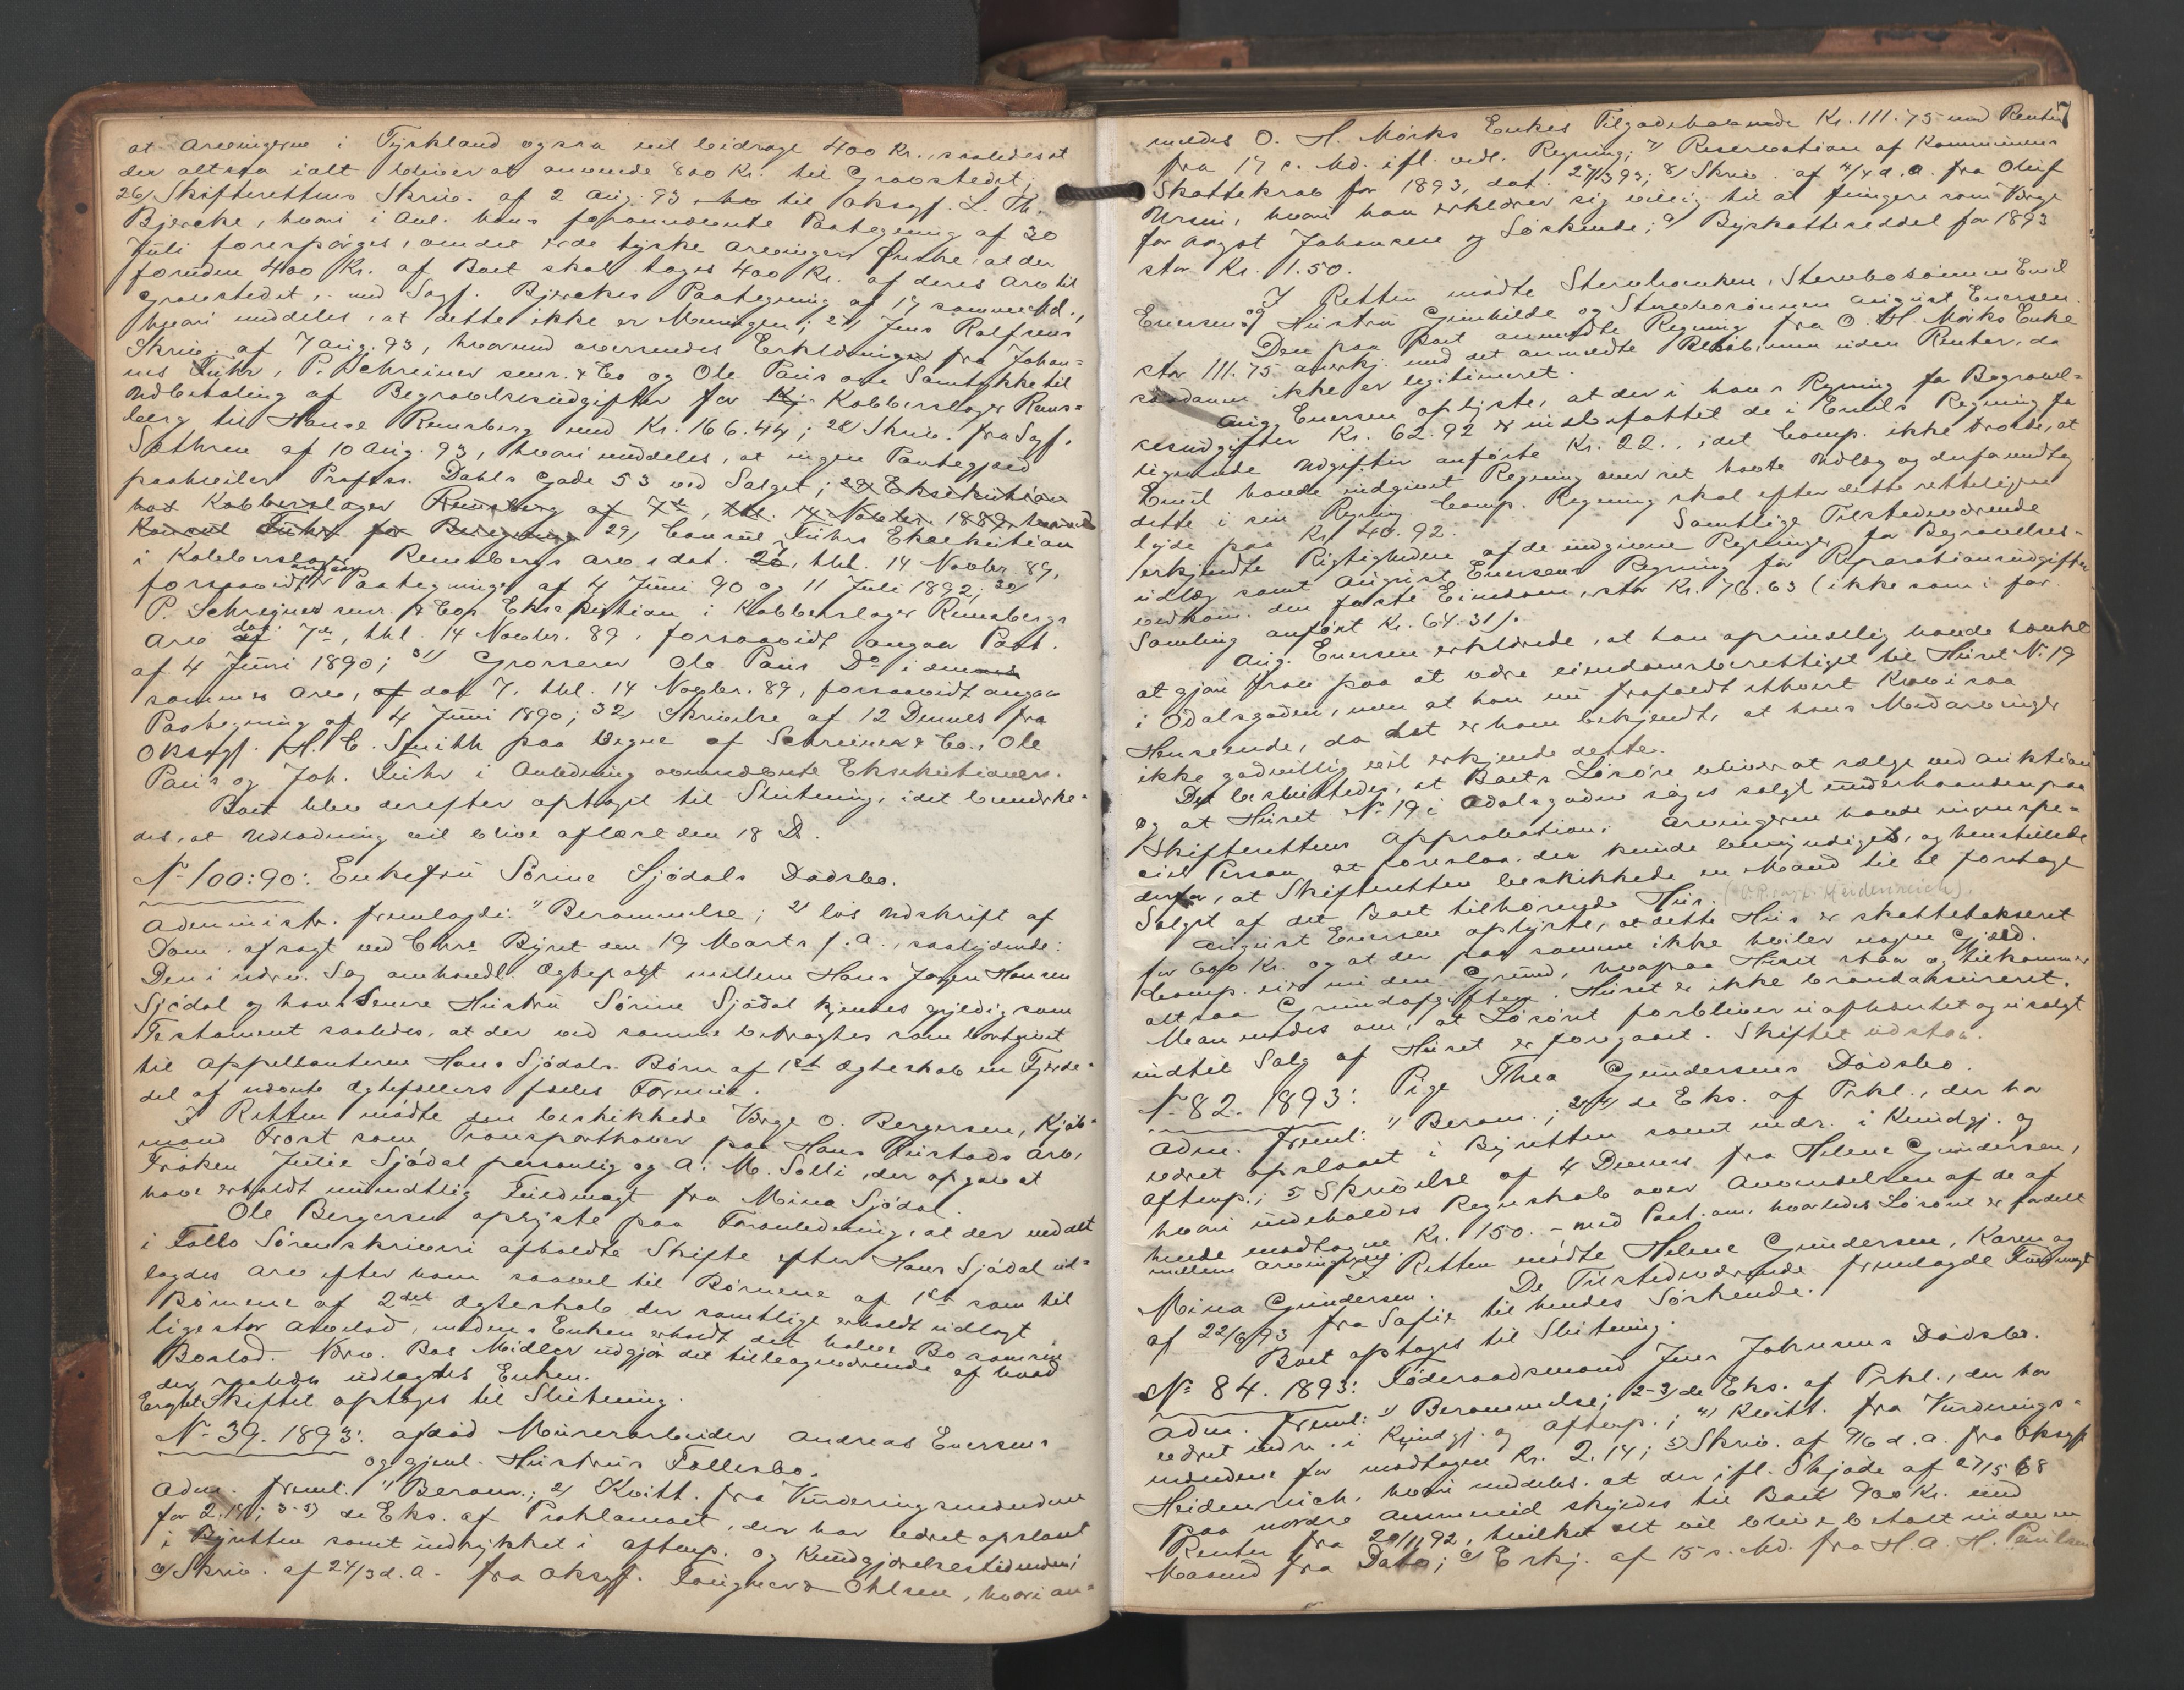 at Arvingerne i Tyskland ogsaa vil bidrage 400 Kr., saaledes at
der altsaa ialt bliver at anvende 800 Kr. til Gravstedet;
26) Skifterettens Skriv. af 2 Aug. 93 til Oksgf. L. Th.
Bjercke, hvori i Anl. hans forannævnte Paategning af 30
Juli forespørges, om det er de tyske Arvingers Ønske, at der
foruden 400 Kr. af Boet skal tages 400 Kr. af deres Arv til
Gravstedet, med Sagf. Bjerckes Paategning af 17 samme Md.,
hvori meddeles, at dette ikke er Meningen; 27) Jens Rolfsens
Skriv. af 7 Aug. 93, hvorved oversendes Erklæringer fra Johan-
nes Führ, P. Schreiner senr. & Co og Ole Paus om Samtykke til
Udbetaling af Begravelsesudgifter for Kobberslager Rens-
berg til Hanse Rensberg med Kr. 166.44; 28) Skriv. fra Sagf.
Sethren af 10 Aug. 93, hvori meddeles, at ingen Pantegjæld
paahviler Profess. Dahls Gade 53 ved Salget; 29) Eksekution
hos Kobberslager Rensberg af 7de, thl. 14 Novbr. 1889, hvorved
Konsul Führ for 29) Consul Führs Eksekution
i Kobberslager Rensbergs Arv, dat. 26, thl. 14 Novbr. 89,
forsaavidt angaar Paategninger af 4 Juni 90 og 11 Juli 1892; 30)
P. Schreiner senr. & Cos Eksekution i Kobberslager Rensbergs
Arv dat. 7de, thl. 14 Novbr. 89, forsaavidt angaar Paat.
af 4 Juni 1890; 31) Grosserer Ole Paus Do i
sammes Arv, dat. 7, thl. 14 Novbr. 89, forsaavidt angaar
Paategning af 4 Juni 1890; 32) Skrivelse af 12 Dennes fra
Oksagf. H. C. Smith paa Vegne af Schreiner & Co., Ole
Paus og Joh. Führ i Anledning ovennævnte Eksekutioner.
Boet blev derefter optaget til Slutning, idet bemærke-
des, at Udlodning vil blive aflæst den 18 D.
No 100:90: Enkefru Sørine Sjødals Dødsbo.
Administr. fremlagde: 1) Berammelse; 2) løs Udskrift af
Dom, afsagt ved Chra Byret den 19 Marts f. A., saalydende:
Den i nærv. Sag omhandl. Ægtepagt mellem Hans Jørgen Hansen
Sjødal og hans senere Hustru Sørine Sjødal kjendes gyldig som
Testament saaledes, at der ved samme betragtes som bortgivet
til Appellanterne Hans Sjødals Børn af 1st Ægteskab en Fjerde-
del af nævnte Ægtefællers fælles Formue.
I Retten mødte den beskikkede Værge O. Bergersen, Kjøb-
mand Frost som Transporthaver paa Hans Arv,
Frøken Julie Sjødal personlig og A. M. Solli, der opgav at
have erholdt mundtlig Fuldmagt fra Mina Sjødal.
Ole Bergersen oplyste paa Foranledning, at der ved det
i Follo Sorenskriveri afholdte Skifte efter Hans Sjødal ud-
lagdes Arv efter ham saavel til Børnene af 1st som til
Børnene af 2det Ægteskab, der samtlige erholdt udlagt
lige stor Arvelod, medens Enken erholdt det halve Bo som sin
Boslod. Nærv. Bos Midler udgjør det tilbageværende af hvad
der saaledes udlagdes Enken.
Skiftet optoges til Slutning.
No 39. 1893: afdød Murerarbeider Andreas Evensens
og gjenl. Hustrus Fællesbo.
Adm. freml: 1) Beram.; 2) Kvitt. fra Vurderingsmændene
for 2.14; 3-5) de Eks. af Proklamaet, der har været opslaaet
i Byretten samt indrykket i Aftenp. og Kundgjørelsestidende;
6) Skriv. af 24/3 d. A. fra Oksgf. Ohlsen, hvori an-
7
meldes O. H. Mørks Enkes Tilgodehavende Kr. 111.75 med Renter
fra 17 s. Md. ifl. vedl. Regning; 7) Reservation af Kommunens
Skattekrav for 1893, dat. 27/3 93; 8) Skriv. af 4/4 d. A. fra Oluf
Ursin, hvori han erklærer sig villig til at fungere som Værge
for August Johansen og Søskende; 9) Byskatteseddel for 1893
stor Kr. 1.50.
I Retten mødte Stervboenken, Stervbosønnen Emil
Evensen og Hustru Gunhilde og Stervbosønnen August Evensen.
Den paa Boet anmeldte Regning fra O. H. Mørks Enke
stor 111.75 anerkj. med det anmeldte Beløb, men uden Renter, da
saadanne ikke er legitimeret.
Aug. Evensen oplyste, at der i hans Regning for Begravel-
sesudgifter Kr. 62.92 er indbefattet de i Emils Regning for
lignende Udgifter anførte Kr. 22., idet Comp. ikke troede, at
Emil havde indgivet Regning over sit havte Udlæg og derfor medtog
dette i sin Regning. Comp. Regning skal efter dette rettelig
lyde paa Kr. 40.92. Samtlige Tilstedeværende
erkjendte Rigtigheden af de indgivne Regninger for Begravelses-
udlæg samt August Evensens Regning for Reparationsudgifter
vedkom. den faste Eiendom, stor Kr. 76.63 (ikke som i for.
Samling anført Kr. 64.31).
Aug. Evensen erklærede, at han oprindelig havde tænkt
at gjøre Krav paa at være eiendomsberettiget til Huset No 19
i Odalsgaden, men at han nu frafaldt ethvert Krav i saa
Henseende, da det er ham bekjendt, at hans Medarvinger
ikke godvillig vil erkjende dette.
Det besluttedes, at Boets Løsøre bliver at sælge ved Auktion
og at Huset No 19 i Odalsgaden søges solgt underhaanden paa
Skifterettens Approbation. Arvingerne havde ingen spe-
ciel Person at foreslaa, der kunde bemyndiges, og henstillede
derfor, at Skifteretten beskikkede en Mand til at foretage
Salget af det Boet tilhørende Hus. (O.R.sagf. Heidenreich).
August Evensen oplyste, at dette Hus er skattetakseret
for 600 Kr. og at der paa samme ikke hviler nogen Gjæld.
Comp. eier nu den Grund, hvorpaa Huset staar og tilkommer
altsaa Grundafgiften. Huset er ikke brandassureret.
Man enedes om, at Løsøret forbliver uafhentet og usolgt
indtil Salg af Huset er foregaaet. Skiftet udstaar.
No 82. 1893: Pige Thea Gundersens Dødsbo.
Adm. freml: 1) Beram.; 2-4) de Eks. af Prkl., der har
været opslaaet i Byretten samt indr. i Kundgj. og
Aftenp.; 5) Skrivelse af 4 Dennes fra Helene Gundersen,
hvori indeholdes Regnskab over Anvendelsen af de af
hende modtagne Kr. 150. - med Paat. om, hvorledes Løsøret er fordelt
mellem Arvingerne.
I Retten mødte Helene Gundersen, Karen og
Mina Gundersen. De Tilstedeværende fremlagde Fuldmagt
af 22/6 93 fra Sofie til hendes Søskende.
Boet optoges til Slutning.
No 84. 1893: Føderaadsmand Jens Johnsens Dødsbo.
Adm. freml: 1) Berammelse; 2-3) de Eks. af Prkl., der har
været indr. i Kundgj. og Aftenp.; 4) Kvitt. fra Vurderings-
mændene for modtagne Kr. 2.14; 5) Skriv. af 9/6 d. A. fra Oksgf.
Heidenreich, hvori meddeles, at der ifl. Skjøde af 27/5 68
paa nordre Ammerud skyldes til Boet 900 Kr. med
Renter fra 20/11 92, hvilket alt vil blive betalt inden en
Maaned fra Dato; 6) Erkj. af 15 s. Md. fra H. A. H. Paulsen